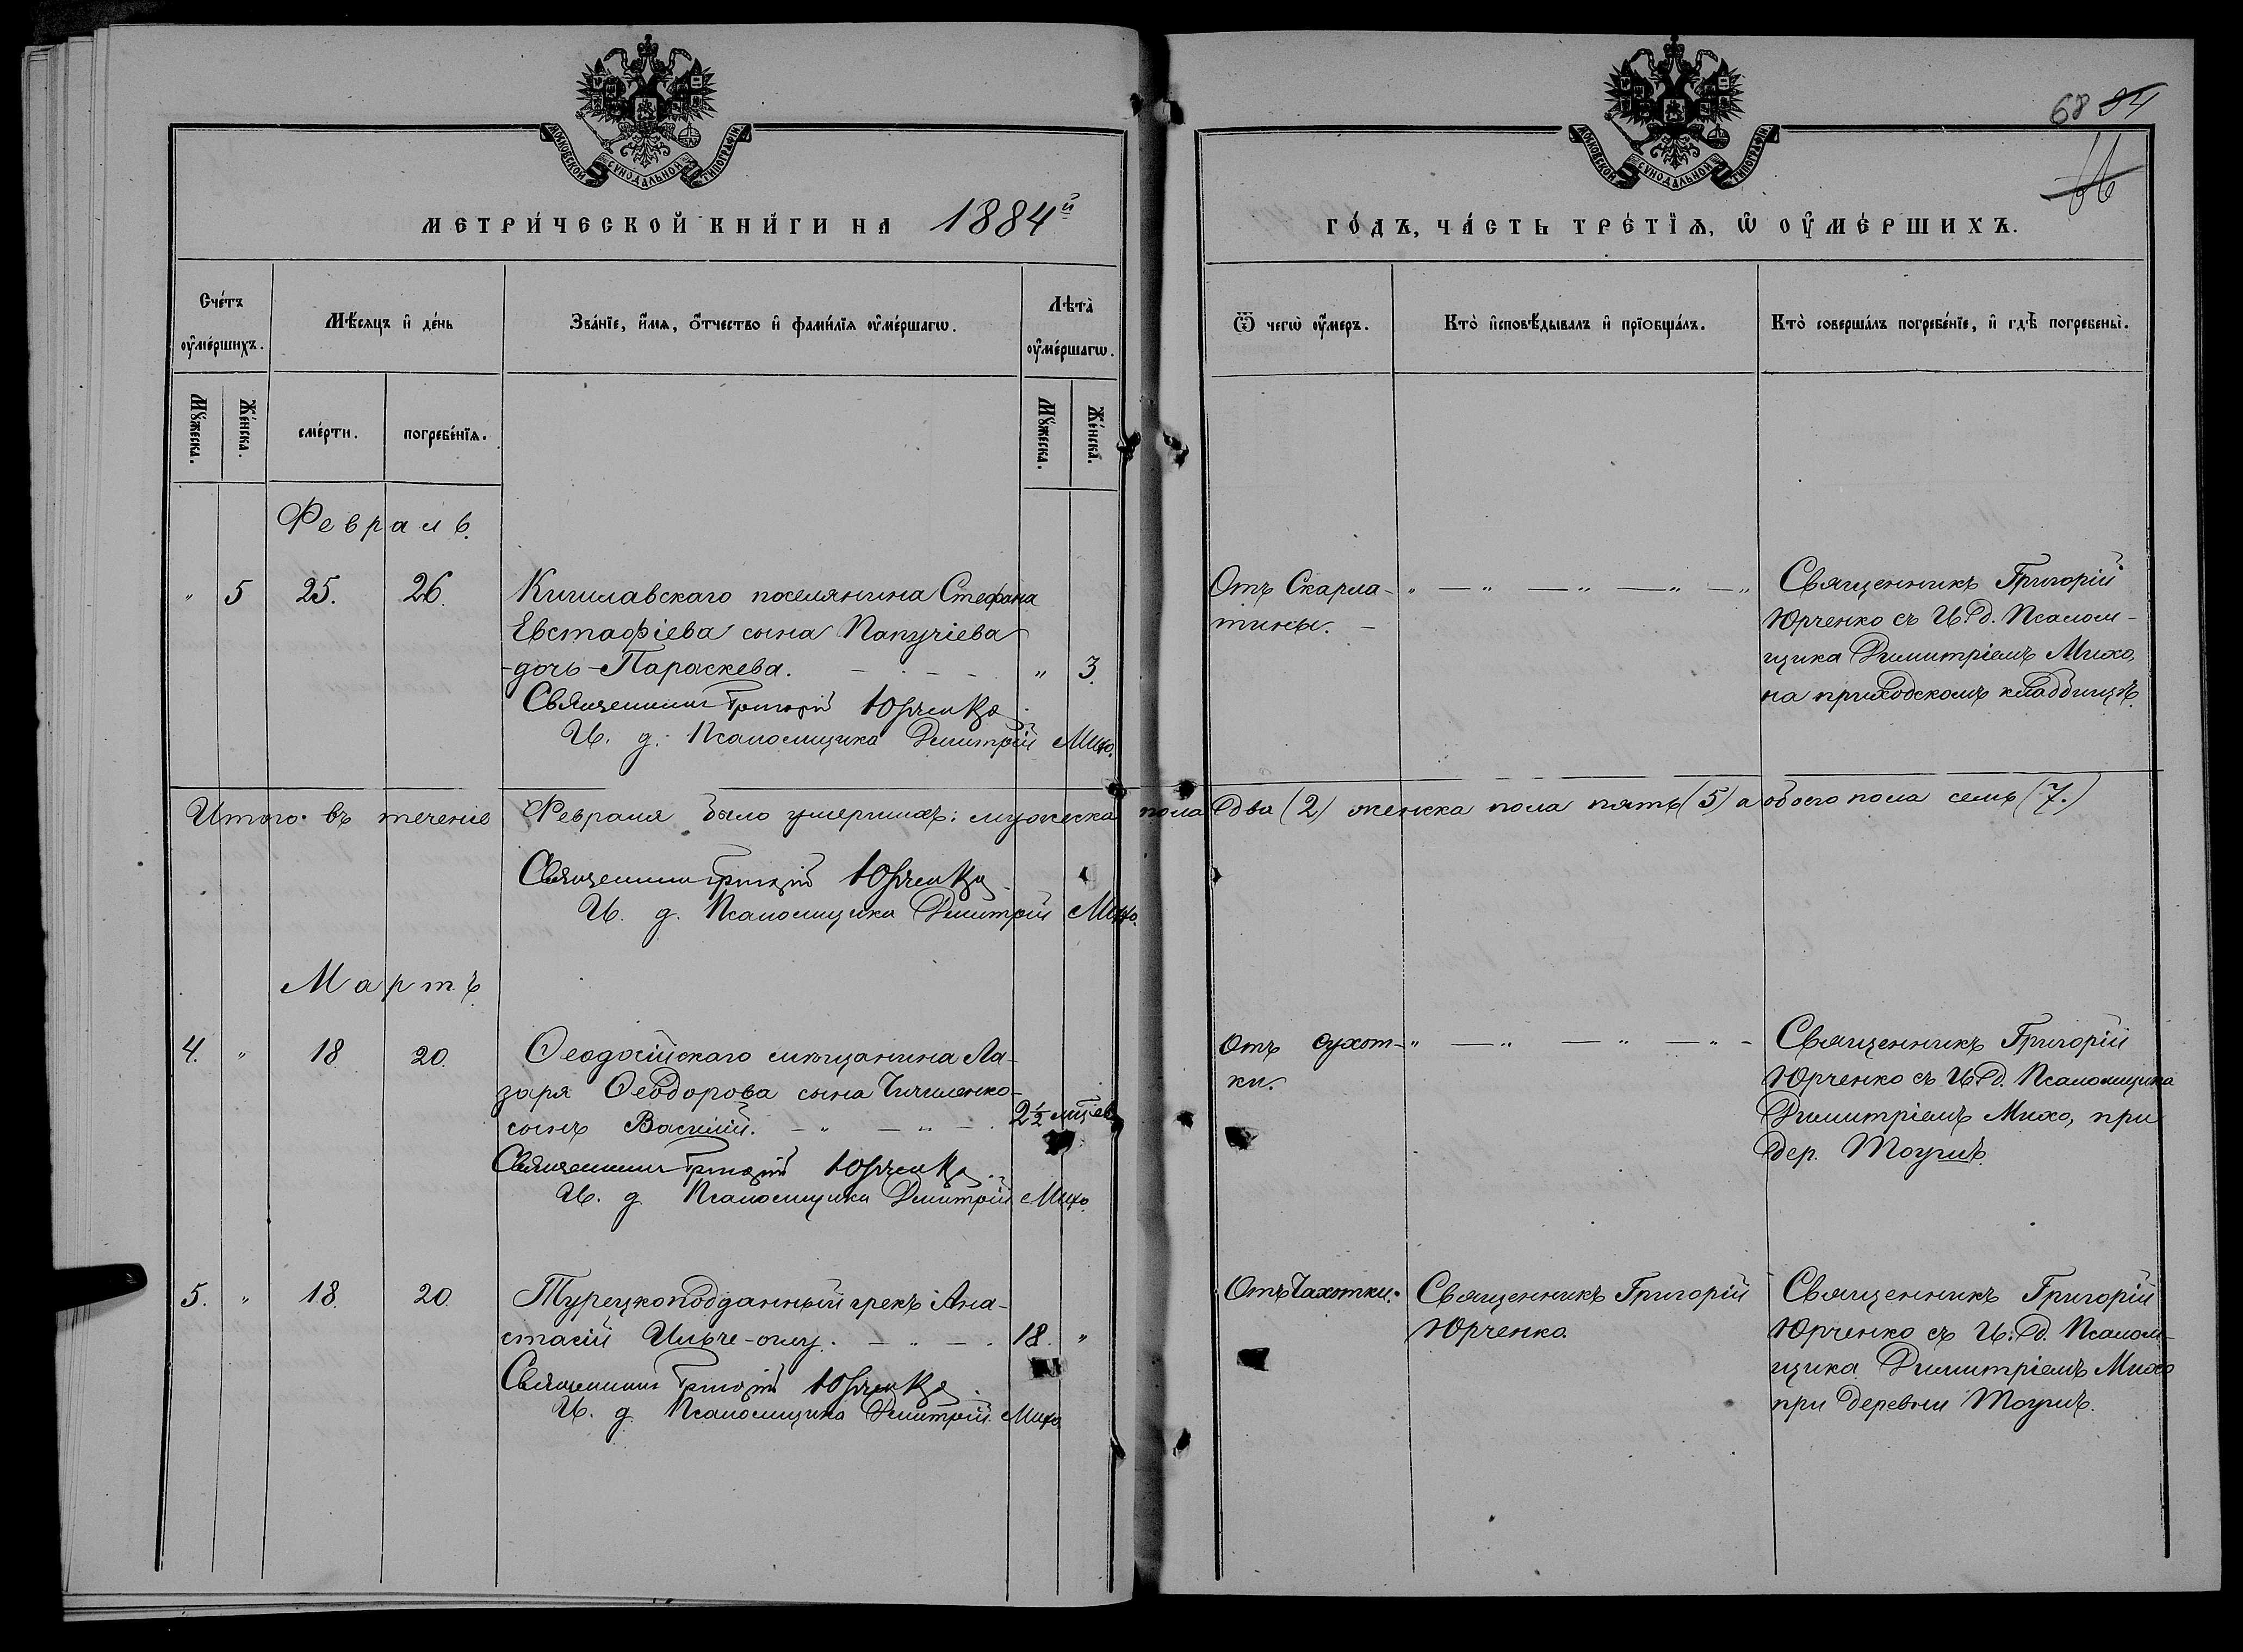 МОСКОВСКОЙ СѴНОДАЛЬНОЙ ТИПОГРАФІИ
МЕТРИ́ЧЕСКОЙ КНИ́ГИ НА 1884й
Сче́тъ ᲂу҆ме́ршихъ.
Мѣ́сяцъ и҆ де́нь
Зва́нїе, и҆́мя, ѻ҆́тчество и҆ фами́лїя ᲂу҆ме́ршагѡ.
Лѣ́та ᲂу҆ме́ршагѡ.
Мꙋ́жеска.
Же́нска.
сме́рти.
погребе́нїя.
Мꙋ́жеска.
Же́нска.
Февраль.
" 5 25. 26.
Кишлавскаго поселянина Стефана
Евстафіева сына Папучіева
дочь Параскева. " 3.
Священникъ Григорій Юрченко.
И. д. Псаломщика Димитрій Михо.
Итого въ теченіе Февраля было умершихъ: мужеска пола два (2) женска пола пять (5) а обоего пола семь (7.)
Священникъ Григорій Юрченко
И. д. Псаломщика Димитрій Михо.
Мартъ.
4. " 18. 20.
Ѳеодосійскаго мѣщанина Ла-
заря Ѳеодорова сына
сынъ Василій. 2½ мѣц
Священникъ Григорій Юрченко.
И. д. Псаломщика Димитрій Михо.
5. " 18. 20.
Турецкоподданный грекъ Ана-
стасій 18. "
Священникъ Григорій Юрченко.
И. д. Псаломщика Димитрій Михо.
68 84
МОСКОВСКОЙ СѴНОДАЛЬНОЙ ТИПОГРАФІИ
ГО́ДЪ, ЧА́СТЬ ТРЕ́ТЇѦ, Ѡ҆ ОУ҆МЕ́РШИХЪ.
Ѿ чегѡ̀ ᲂу҆́меръ.
Кто̀ и҆сповѣ́дывалъ и҆ прїобща́лъ.
Кто̀ соверша́лъ погребе́нїе, и҆ гдѣ̀ погребены̀.
Отъ Скарла-
тины.
Священникъ Григорій
Юрченко съ И. д. Псалом-
щика Димитріемъ Михо,
на приходскомъ кладбищѣ.
Отъ сухот-
ки.
Священникъ Григорій
Юрченко съ И. д. Псаломщика
Димитріемъ Михо, при
дер.
Отъ Чахотки.
Священникъ Григорій
Юрченко.
Священникъ Григорій
Юрченко съ И. д. Псалом-
щика Димитріемъ Михо
при деревни